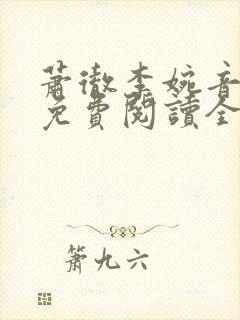 蕭徹李婉音
免費閱讀全
簫九六